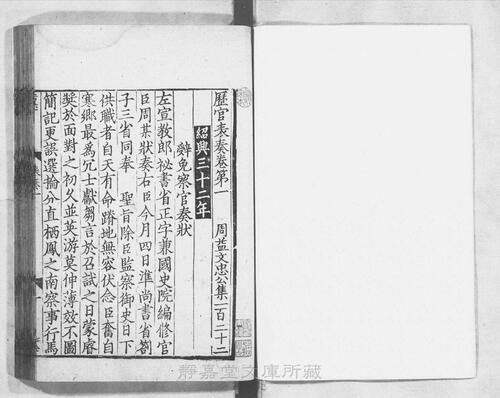 歷官表奏卷第一　周益文忠公集一百二十二
紹興三十二年
辭免察官奏狀
左宣教郎祕書省正字兼國史院編修官
臣周某狀奏右臣今月四日準尚書省劄
子三省同奉　聖旨除臣監察御史日下
供職者自天有命蹐地無容伏念臣奮自
寒鄉最爲冗士獻芻言於召試之日蒙睿
獎於面對之初久並英游莫伸薄效不圖
簡記更誤選掄分直栖鳳之南察事行馬
靜嘉堂文庫所藏